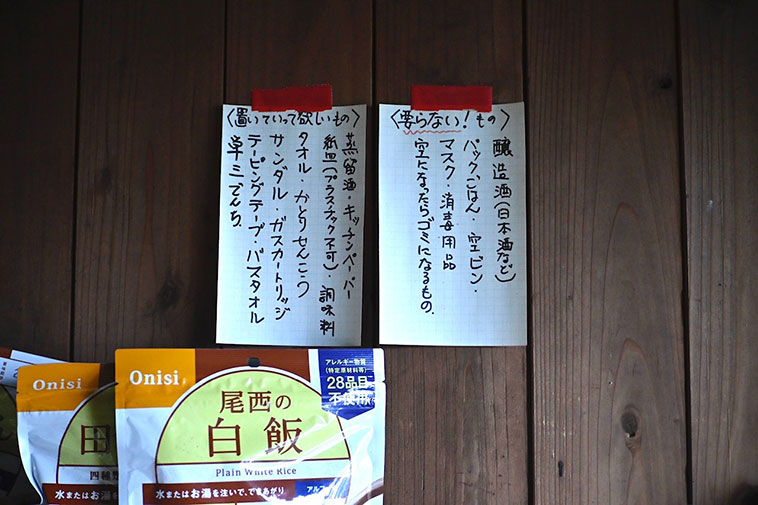 〈置いていって欲しいもの〉
蒸留酒・キッチンペーパー
紙皿(プラスチック不可)・調味料
タオル・かとりせんこう
サンダル・ガスカートリッジ
テーピングテープ・バスタオル
単三でんち
〈要らない!もの〉
醸造酒(日本酒など)
パックごはん・空ビン・
マスク・消毒用品
空になったらゴミになるもの.
Onisi
田
四種
水またはお湯
Onisi
アレルギー物質
(特定原材料等)
28品目
不使用
尾西の
白飯
Plain White Rice
水またはお湯を注いで、できあがり
アルフ